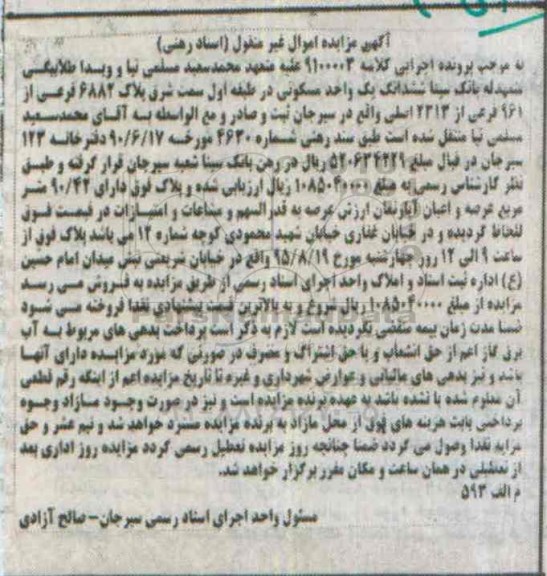 آگهی مزایده اموال غیر منقول (اسناد رهنی)
به موجب پرونده اجرایی کلاسه ۹۱۰۰۰۰۳ علیه متعهد محمدسعید مسلمی نیا و ویدا طلابیگی
شهیدله بانک سینا ششدانگ یک واحد مسکونی در طبقه اول سمت شرق پلاک ۶۸۸۲ فرعی از
۹۶۱ فرعی از ۲۳۱۳ اصلی واقع در سیرجان ثبت و صادر و مع الواسطه به آقای محمدسعید
مسلمی نیا منتقل شده است طبق سند رهنی شماره ۴۶۳۰ مورخه ۹۰/۶/۱۷ دفترخانه ۱۲۳
سیرجان در قبال مبلغ ۵۲۰۶۳۴۲۲۹ ریال در رهن بانک سینا شعبه سیرجان قرار گرفته و طبق
نظر کارشناس رسمی به مبلغ ۱۰۸۵۰۴۰۰۰۰ ریال ارزیابی شده و پلاک فوق دارای ۹۰/۴۲ متر
مربع عرصه و اعیان آپارتمان ارزش عرصه به قدرالسهم و مشاعات و امتیازات در قیمت فوق
لحاظ گردیده و در خیابان غفاری خیابان شهید محمودی کوچه شماره ۱۴ می باشد پلاک فوق از
ساعت ۹ الی ۱۲ روز چهارشنبه مورخ ۹۵/۸/۱۹ واقع در خیابان شریعتی نبش میدان امام حسین
(ع) اداره ثبت اسناد و املاک واحد اجرای اسناد رسمی از طریق مزایده به فروش می رسد
مزایده از مبلغ ۱۰۸۵۰۴۰۰۰۰ ریال شروع و به بالاترین قیمت پیشنهادی نقدا فروخته می شود
ضمنا مدت زمان بیمه منقضی گردیده است لازم به ذکر است پرداخت بدهی های مربوط به آب
برق گاز اعم از حق انشعاب و یا حق اشتراک و مصرف در صورتی که مورد مزایده دارای آنها
باشد و نیز بدهی های مالیاتی و عوارض شهرداری و غیره تا تاریخ مزایده اعم از اینکه رقم قطعی
آن معلوم شده یا نشده باشد به عهده برنده مزایده است و نیز در صورت وجود مازاد وجوه
پرداختی بابت هزینه های فوق از محل مازاد به برنده مزایده مسترد خواهد شد و نیم عشر و حق
مزایده نقدا وصول می گردد ضمنا چنانچه روز مزایده تعطیل رسمی گردد مزایده روز اداری بعد
از تعطیلی در همان ساعت و مکان مقرر برگزار خواهد شد.
م الف ۵۹۳
مسئول واحد اجرای اسناد رسمی سیرجان- صالح آزادی